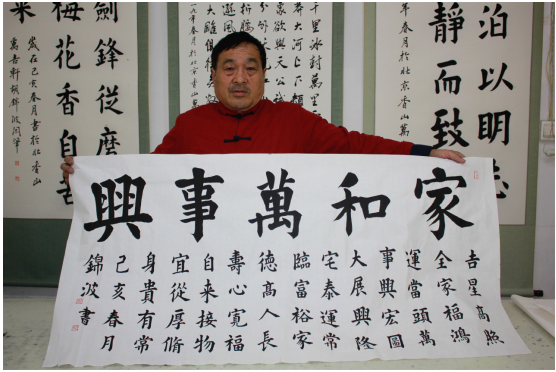 家和萬事興
吉星高照
全家福鴻
運當頭萬
事興宏圖
大展興隆
宅泰運常
臨富裕家
德高人長
壽心寬福
自来接物
宜從厚脩
身貴有常
己亥春月
錦波書
泊以明志
靜而致
年春月於北京香山萬
千里冰封萬里
莽大河上下頓
欲與天公試
分外
折腰
大雕
劍鋒從磨
梅花香自苦
歲在己亥春月書於北香山
萬吉軒胡錦波